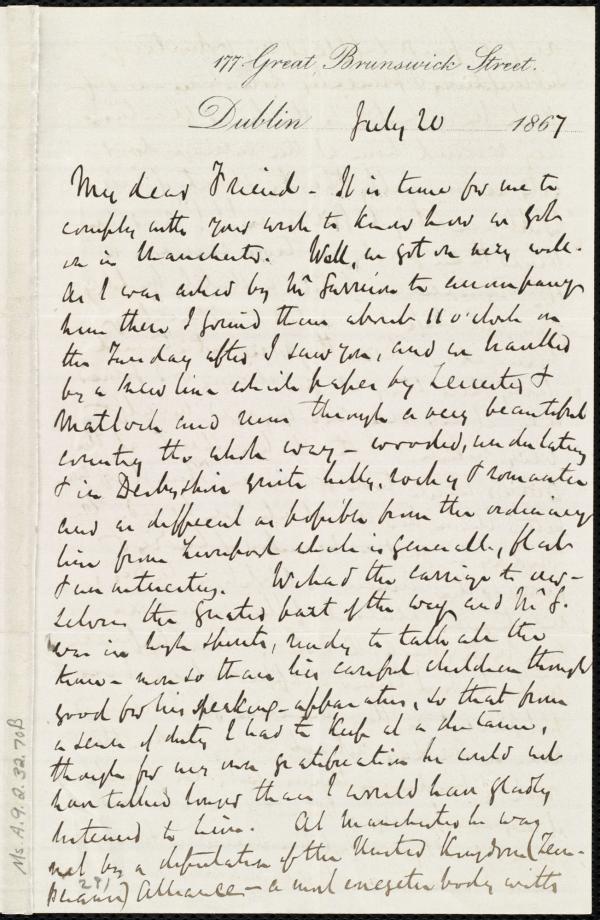 177 Great Brunswick Street.
Dublin July 20 1867
My dear Friend - It is time for me to
comply with your wish to know how we got
on in Manchester. Well, we got on very well.
As I was asked by Mr Garrison to accompany
him there I found them about 11 o'clock on
the Tuesday after I saw you, and we travelled
by a new line which passes by Leicester &
Matlock and runs through a very beautiful
country the whole way - wooded, undulating
& in Derbyshire quite hilly, rocky & romantic
and as different as possible from the ordinary
line from Liverpool which is generally flat
& uninteresting. We had the carriage to our-
selves the greater part of the way and Mr G.
was in high spirits, ready to talk all the
time - more so than his careful children thought
good for his speaking-apparatus, so that from
a sense of duty I had to keep at a distance,
though for my own gratification he could not
have talked longer than I would have gladly
listened to him. At Manchester he was
met by a deputation of the United Kingdom (Tem-
perance) Alliance - a most energetic body with
291
Ms A.9.2.32.70B